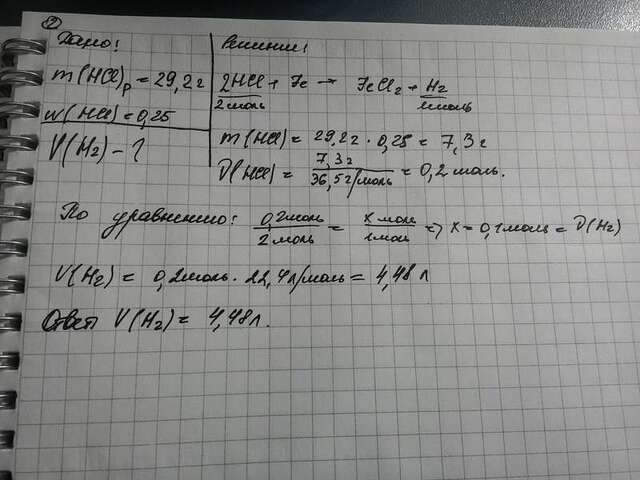 ②
Дано:
m(HCl)р = 29,2г
w(HCl) = 0,25
V(H₂) - ?
Решение:
2HCl + Fe → FeCl₂ + H₂
2моль 1моль
m(HCl) = 29,2г · 0,25 = 7,3г
ν(HCl) = 7,3г / 36,5г/моль = 0,2 моль.
По уравнению: 0,2моль / 2моль = x моль / 1моль => x = 0,1моль = ν(H₂)
V(H₂) = 0,2моль · 22,4л/моль = 4,48 л
Ответ V(H₂) = 4,48л.